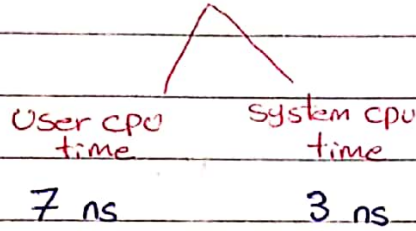 User cpu
time
system cpu
time
7 ns
3 ns